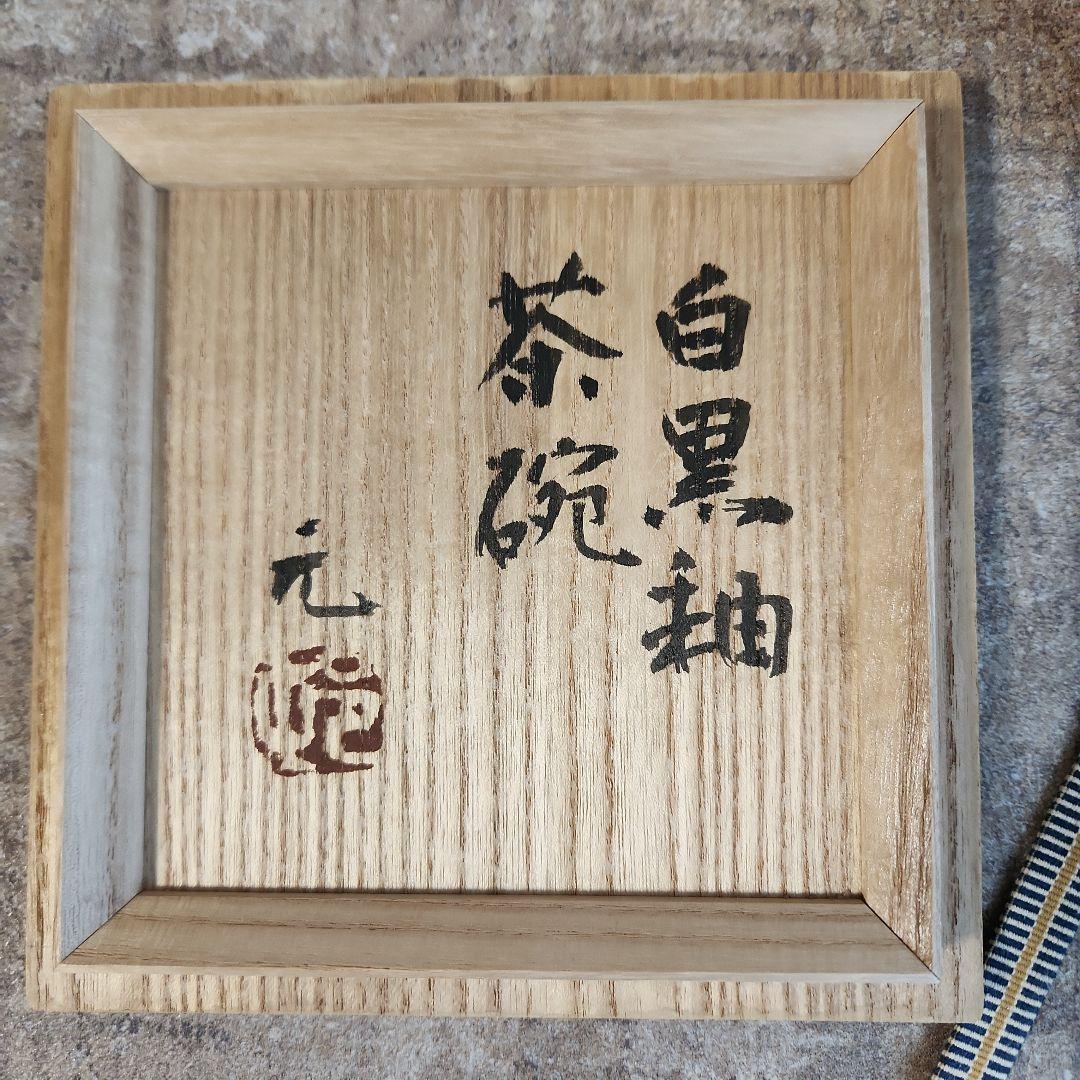 白黒釉
茶碗
元